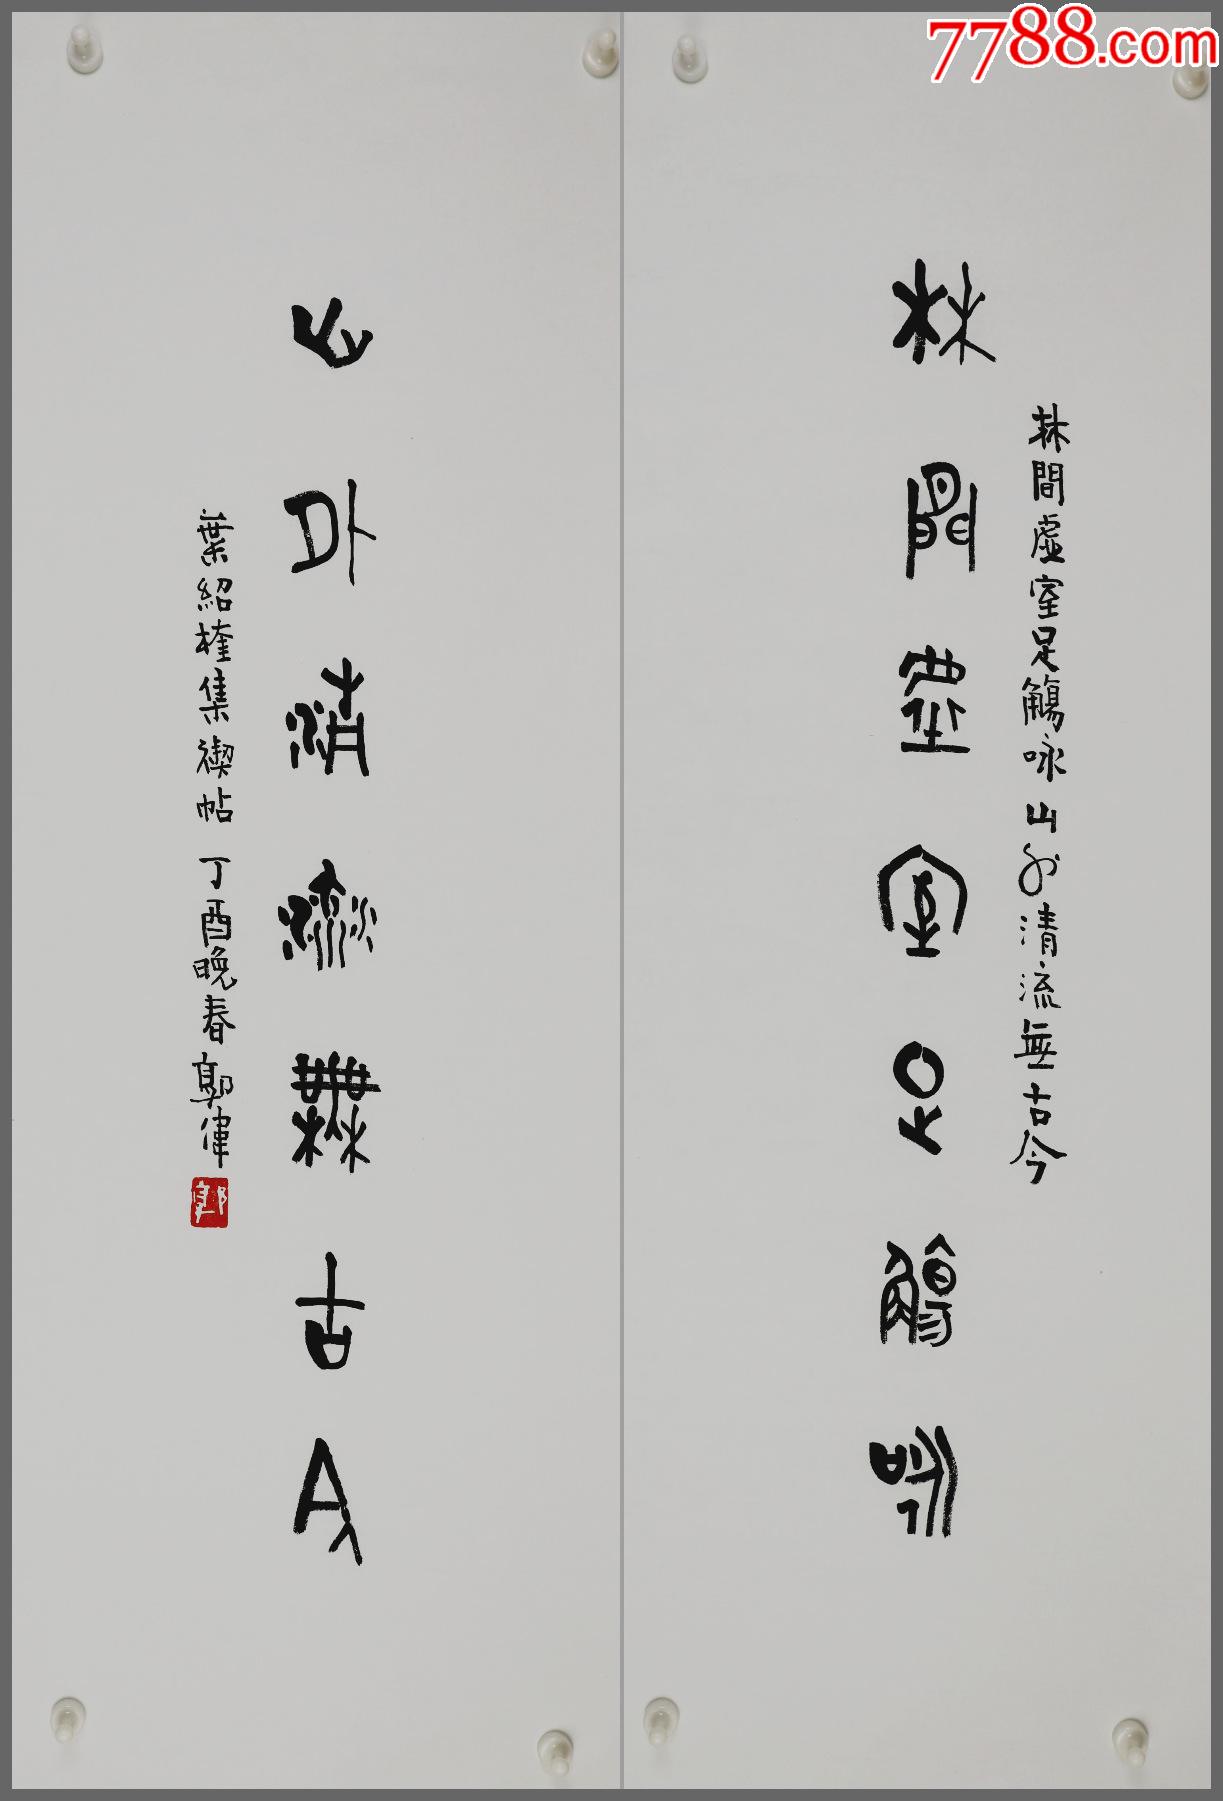 7788.com
林間虛室足觴咏山外清流無古今
林間虛室足觴咏
山外清流無古今
葉紹楏集禊帖 丁酉晚春 鄭偉